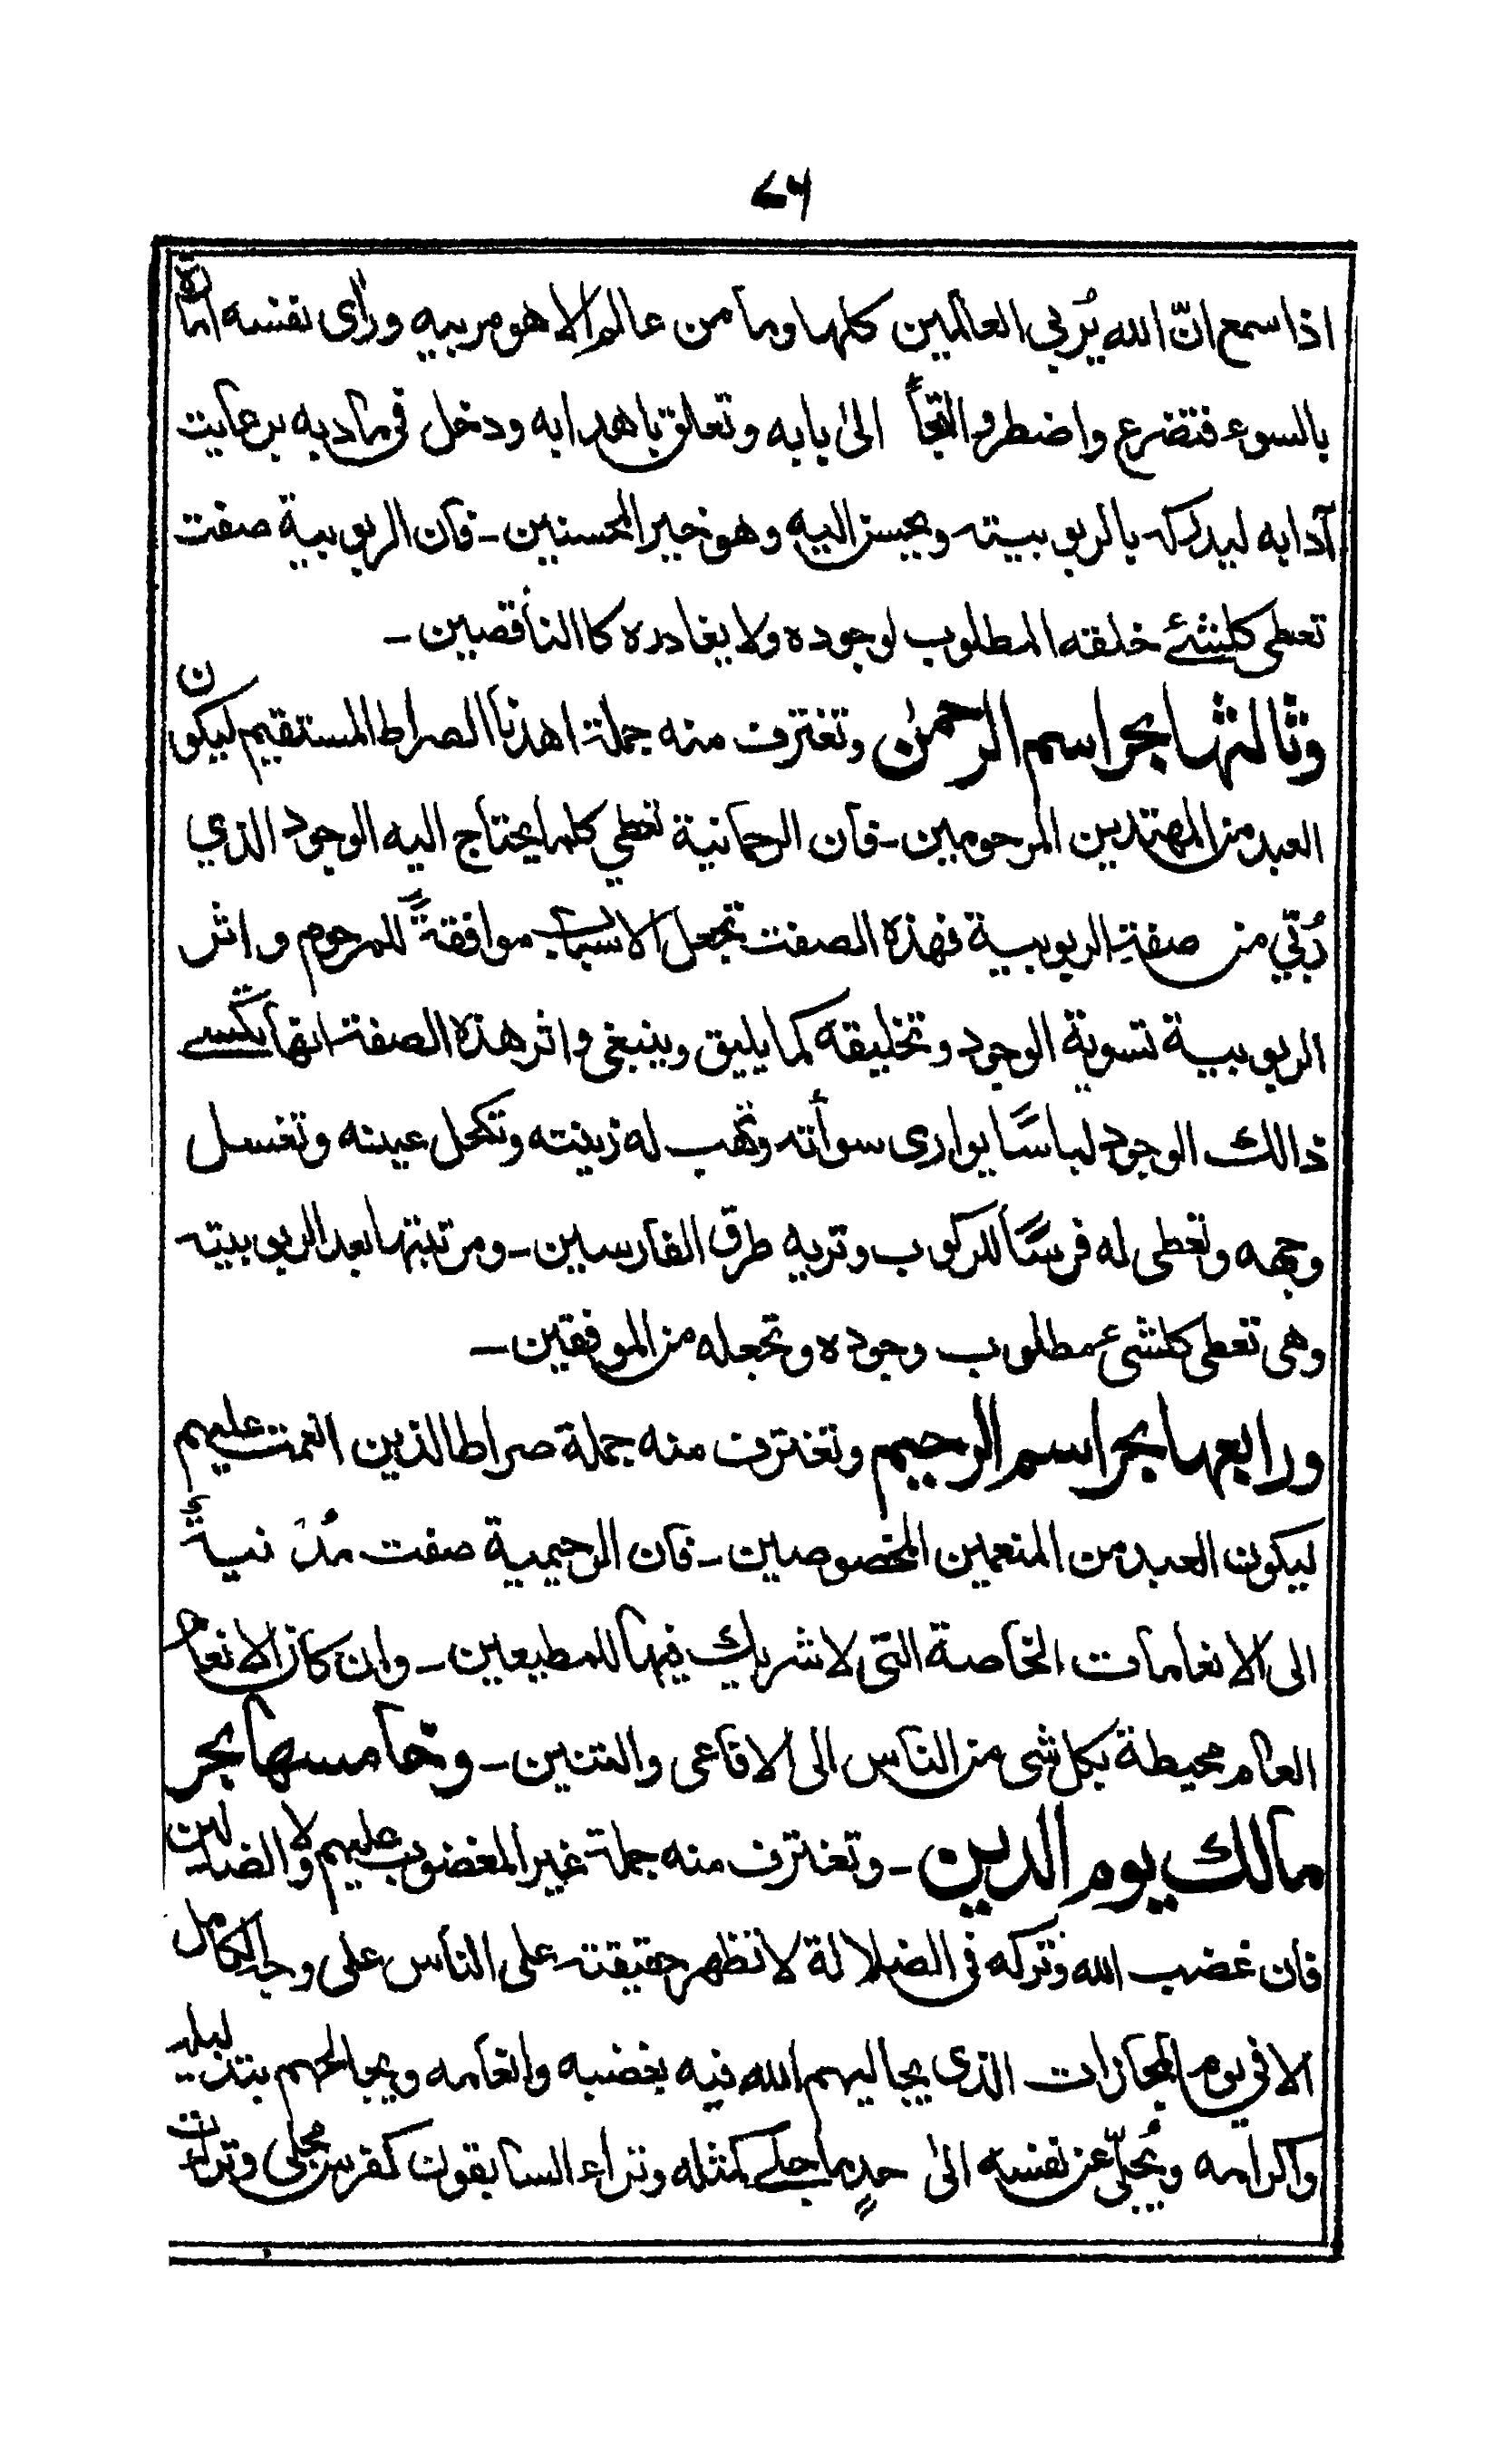 ۷۶
اذا سمع انّ الله يُربي العالمين كلها وما من عالم الا هو مربيه ورأى نفسه امّارة
بالسوء فتضرع واضطر والتجأ الىٰ بابه وتعلق باهدابه ودخل في مادبه برعايت
آدابه ليدركه بالربوبيته ويحسن اليه وهو خير المحسنين - فان الربوبية صفت
تعطى كلشئ خلقه المطلوب لوجوده ولا يغادره كالناقصين -
وثالثها بحر اسم الرحمٰن وتغترف منه جملة اهدنا الصراط المستقيم ليكون
العبد من المهتدين المرحومين - فان الرحمانية تعطي كلما يحتاج اليه الوجود الذي
رُبّي من صفة الربوبية فهذه الصفت تجعل الاسباب موافقةً للمرحوم واثر
الربوبية تسوية الوجود وتخليقه كما يليق وينبغى واثر هذه الصفة انها تُكسى
ذالك الوجود لباسًا يوارى سوأته وتهب له زينته وتكحل عينه وتغسل
وجهه وتعطى له فرسًا للركوب وتريه طرق الفارسين - ومرتبتها بعد الربوبيته
وهى تعطى كلشىء مطلوب وجوده وتجعله من الموفقين -
ورابعها بحر اسم الرحيم وتغترف منه جملة صراط الذين انعمت عليهم
ليكون العبد من المنعمين المخصوصين - فان الرحيمية صفت مُدْنيةٌ
الى الانعامات الخاصة التى لا شريك فيها للمطيعين - وان كان الانعام
العام محيطة بكل شى من الناس الى الافاعى والتنين - وخامسها بحر
مالك يوم الدين - وتغترف منه جملة غير المغضوب عليهم ولا الضالين
فان غضب الله وتركه فى الضلالة لا تظهر حقيقته على الناس على وجه الكامل
الا فى يوم المجازات الذى يجاليهم الله فيه بغضبه وانعامه ويجالحهم بتذليله
واكرامه ويُجلّى عن نفسه الىٰ حدٍ ما جلى كمثله وتراء السابقون كفرس مجلى وتراءت